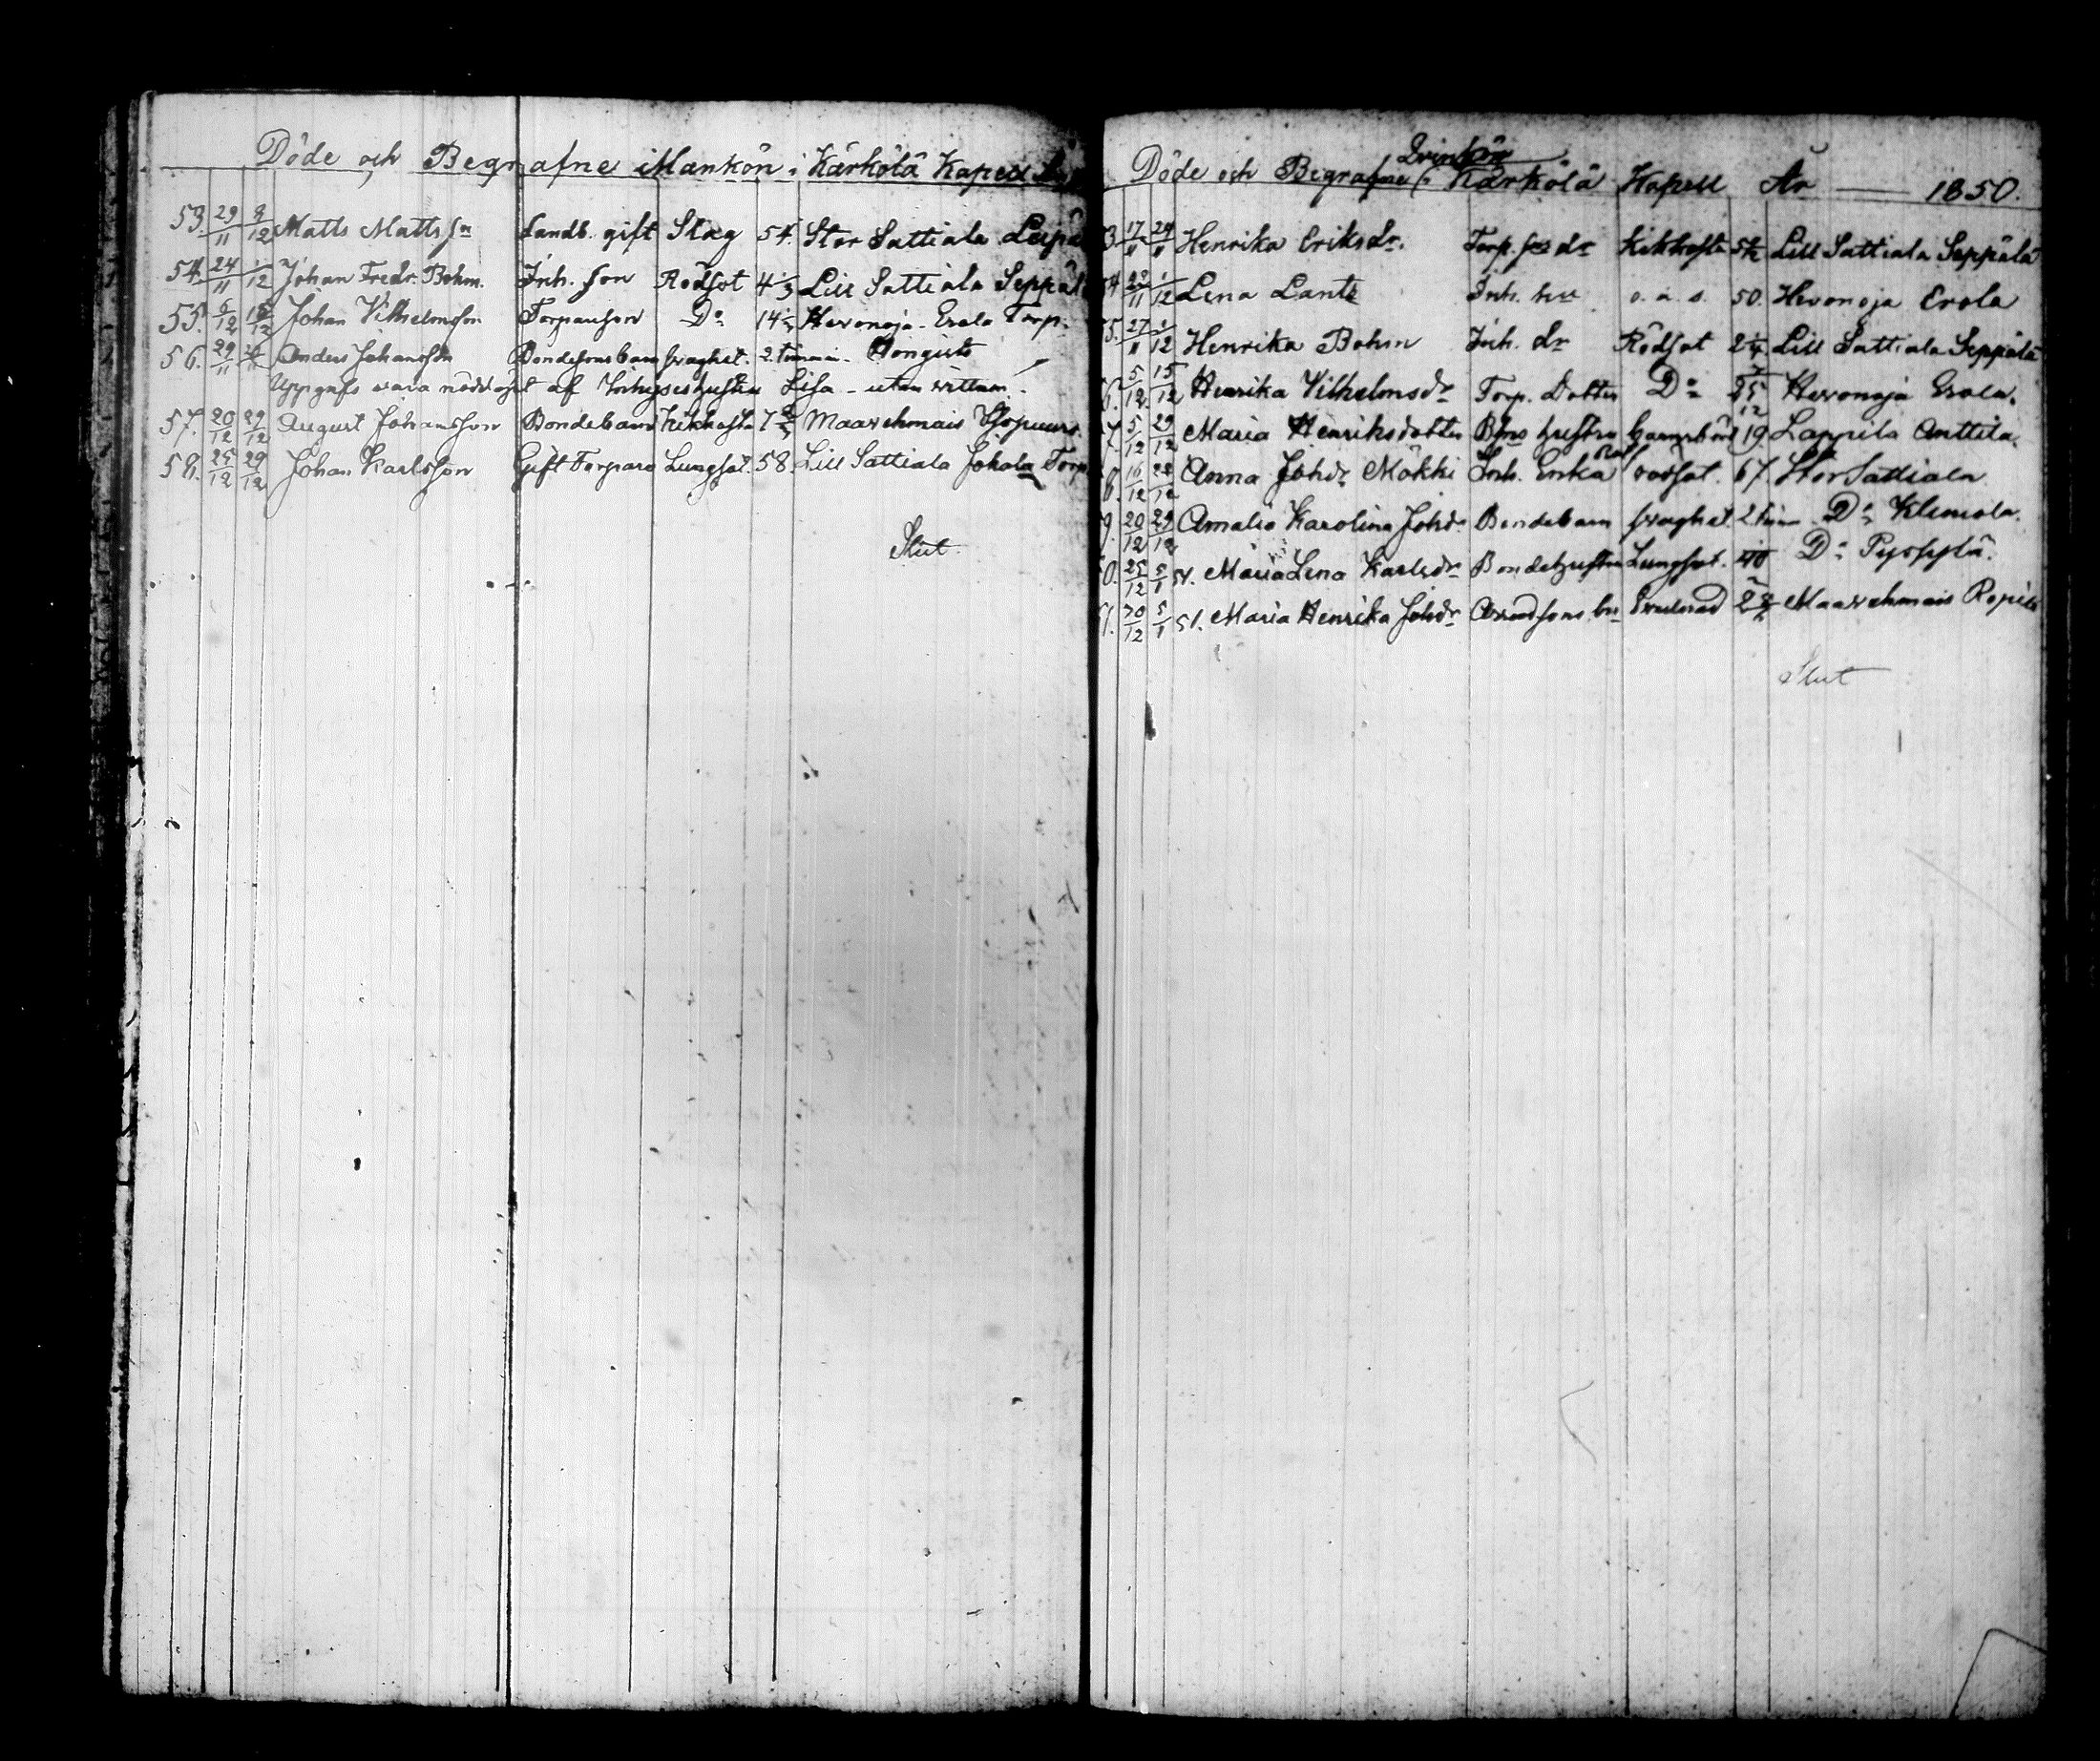 Döde och Begrafne Mankön i Kärkölä Kapell
53. 29/11 8/12 Matts Matts sn Landb. gift Slag 54. Stor Sattiala
54. 24/11 1/12 Johan Fredr. Bohm. Inh. son Rödsot 4 1/3 Lill Sattiala Seppäl
55. 5/12 15/12 Johan Vilhelmsson Torpareson Do 14 Hevonoja Erola Torp.
56. 29/11 Anders Johansson Bondesons barn svaghet. 2. timma. Hongisto
Uppgafs vara nöddöpt af Inhyseshustru Lisa - utan vittnen.
57. 20/12 29/12 August Johansson Bondebarn Kikhosta Maavehmais
58. 25/12 29/12 Johan Karlsson Gift Torpare Lungsot. 58. Lill Sattiala Jokala Torp
Slut.
Qvinkön
Döde och Begrafne i Kärkölä Kapell År 1850.
3. 17/11 24/11 Henrika Eriksdr. Torp. dr Kikhosta Lill Sattiala Seppälä
54 1/12 Lena Lantz Inh. hu o. a. s. 50. Hevonoja Erola
55. 27/11 1/12 Henrika Bohm Inh. dr Rödsot 2 1/4 Lill Sattiala Seppälä
6. 5/12 15/12 Henrika Vilhelmsdr Torp. Dotter Do Hevonoja Erola.
7. 5/12 29/12 Maria Henriksdotter Bns hustru barnsbörd 19 Lappila Anttila.
8. 16/12 22/12 Anna Johdr Mökki Inh. Enka rödsot. 67. Stor Sattiala
9. 20/12 29/12 Amalia Karolina Johdr Bondebarn svaghet. 2 tim Do Klemola.
0. 25/12 5/1 51. Maria Lena Karlsdr Bondehustru Lungsot. 40 Do
1. 30/12 5/1 51. Maria Henrika Johdr Maavehmais
Slut